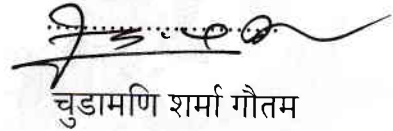 चुडामणि शर्मा गौतम